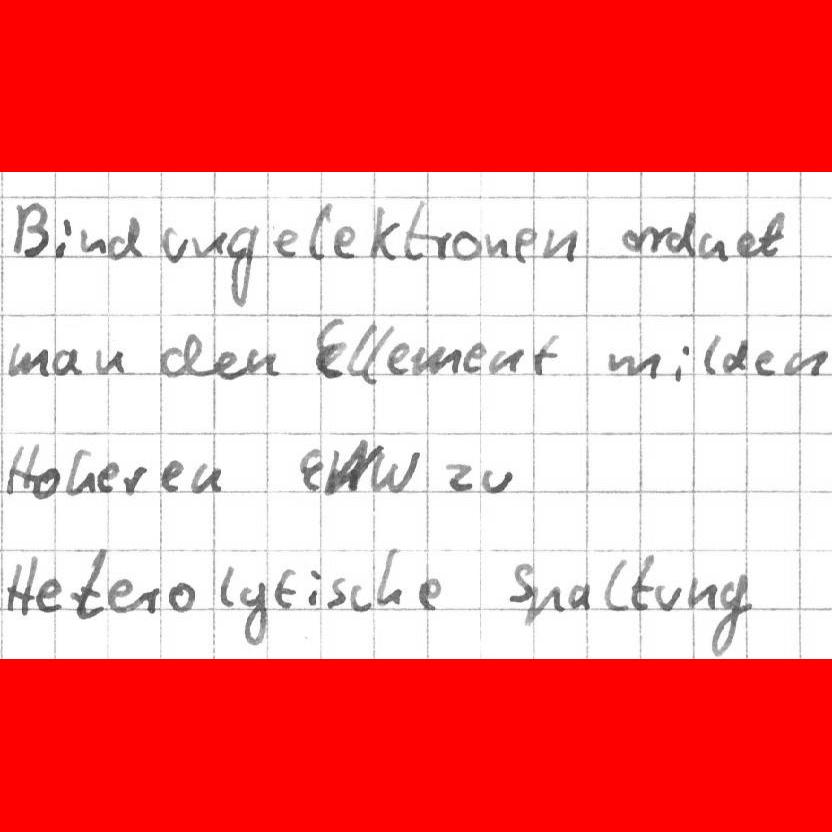 Bindungelektronen ordnet
man den Ellement milden
Hoheren ENW zu
Heterolytische Spaltung